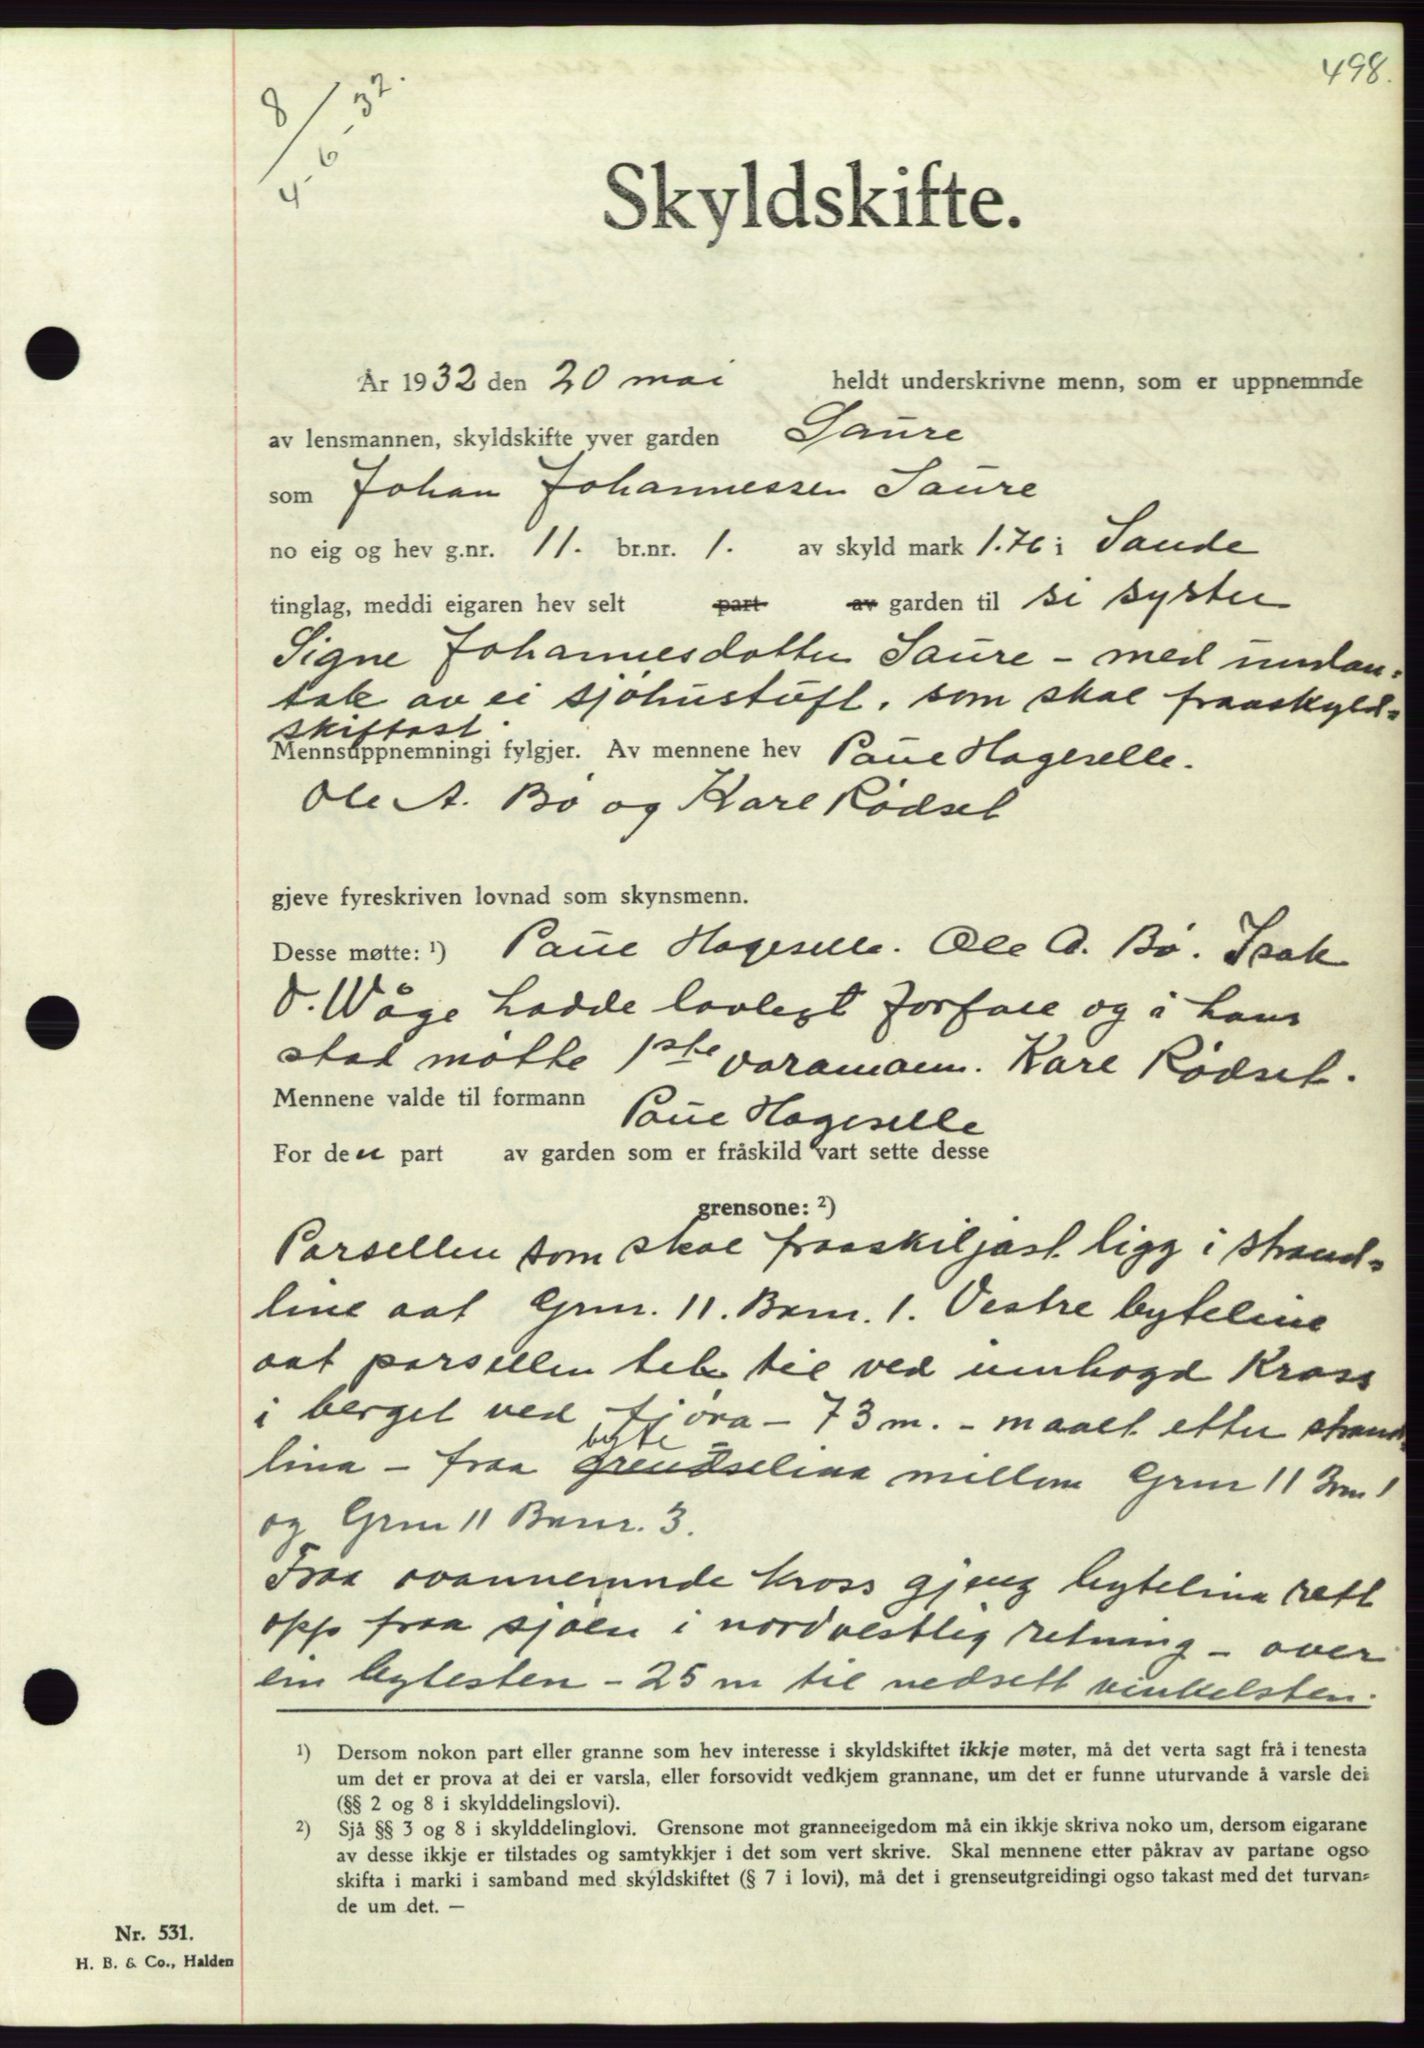 498.
8/4-6-32.
Skyldskifte.
År 1932 den 20 mai heldt underskrivne menn, som er uppnemnde
av lensmannen, skyldskifte yver garden Saure
som Johan Johannessen Saure
no eig og hev g.nr. 11. br.nr. 1. av skyld mark 1.76 i Sande
tinglag, meddi eigaren hev selt part av garden til si syster
Signe Johannesdotter Saure - med undan-
tak av ei sjøhustuft, som skal fraaskyld-
skiftast.
Mennsuppnemningi fylgjer. Av mennene hev Paul Hageselle.
Ole A. Bø og Kare Rødset
gjeve fyreskriven lovnad som skynsmenn.
Desse møtte: ¹) Paul Hageselle. Ole A. Bø. Isak
O. Wåge hadde lovlegt forfall og i hans
stad møtte 1ste varamann. Kare Rødset.
Mennene valde til formann Paul Hageselle
For den part av garden som er fråskild vart sette desse
grensone: ²)
Parsellen som skal fraaskiljast ligg i strand-
line aat Grnr. 11. Brnr. 1. Vestre byteline
aat parsellen tek til ved innhogd kross
i berget ved fjøra - 73 m. - maalt etter strand-
lina - fraa grendselina byte millom Grnr 11 Brnr 1
og Grnr 11 Brnr. 3.
Fraa ovannemnde kross gjeng bytelina rett
opp fraa sjøen i nordvestlig retning - over
ein bytesten - 25 m til nedsett vinkelsten.
¹) Dersom nokon part eller granne som hev interesse i skyldskiftet ikkje møter, må det verta sagt frå i tenesta
um det er prova at dei er varsla, eller forsovidt vedkjem grannane, um det er funne uturvande å varsle dei
(§§ 2 og 8 i skylddelingslovi).
²) Sjå §§ 3 og 8 i skylddelinglovi. Grensone mot granneeigedom må ein ikkje skriva noko um, dersom eigarane
av desse ikkje er tilstades og samtykkjer i det som vert skrive. Skal mennene etter påkrav av partane ogso
skifta i marki i samband med skyldskiftet (§ 7 i lovi), må det i grenseutgreidingi ogso takast med det turvan-
de um det. —
Nr. 531.
H. B. & Co., Halden